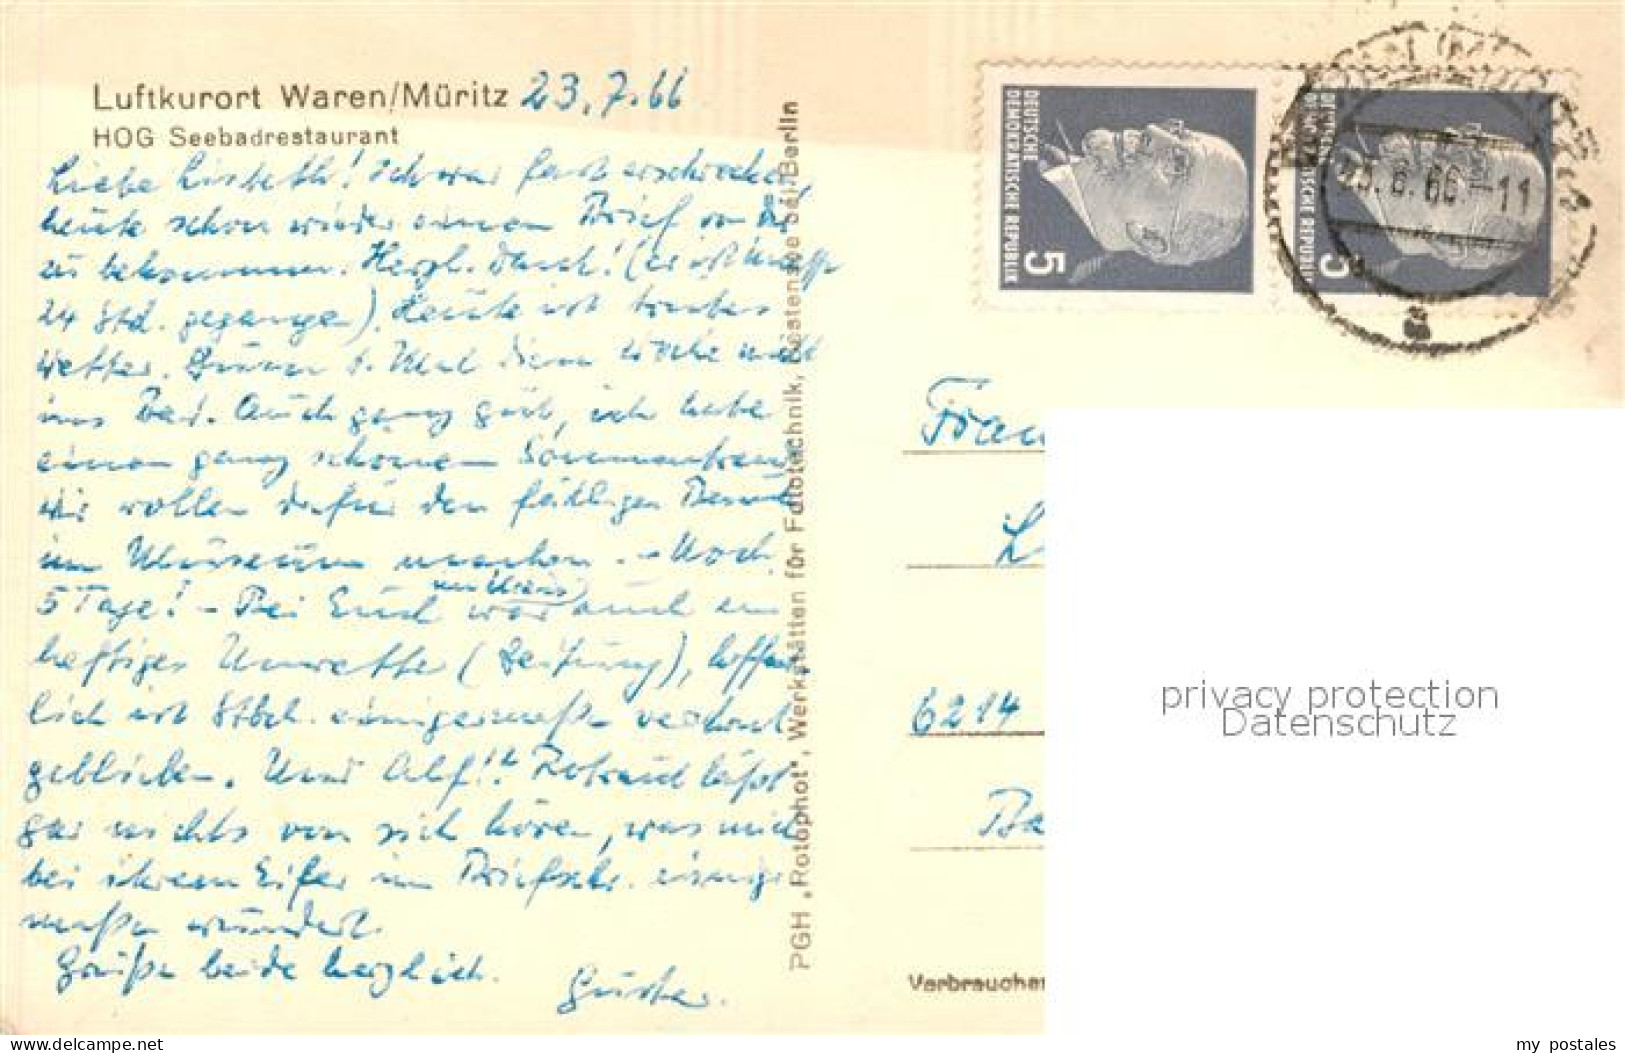 Luftkurort Waren/Müritz 23.7.66
HOG Seebadrestaurant
Liebe Lisbeth! Ich war fast erschrocken,
heute schon wieder einen Brief von Dir
zu bekommen. Herzl. Dank! (er ist
24 Std. gegangen). Heute ist trübes
Wetter. Zum 1. Mal diese Woche nicht
ins Bad. Auch ganz gut, ich habe
einen ganz schönen Sonnenbrand
wir wollen dafür den fälligen Besuch
im Museum machen. - Noch
5 Tage! - Bei Euch war auch ein
heftiges Unwetter (Zeitung), hoffent
lich ist einigermaßen verschont
geblieben. Und Alf!? Rotraud läßt
gar nichts von sich hören, was mich
bei ihrem Eifer im Briefschr. einiger
maßen wundert.
Grüße beide herzlich.
PGH „Rotophot", Werkstätten für Fototechnik, Bestensee bei Berlin
DEUTSCHE
DEMOKRATISCHE REPUBLIK
5
DEUTSCHE
DEMOKRATISCHE REPUBLIK
5
66.-11
Frau
L
6214
Ba
Verbraucher
privacy protection
Datenschutz
www.delcampe.net
my_postales